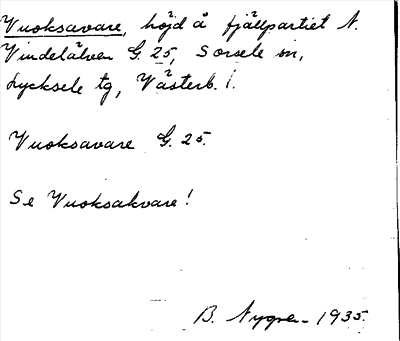 Vuoksavare, höjd å fjällpartiet N.
Vindelälven G. 25, Sorsele sn,
Lycksele tg, Västerb. l.
Vuoksavare G. 25.
Se Vuoksakvare!
B. Nygren 1935.